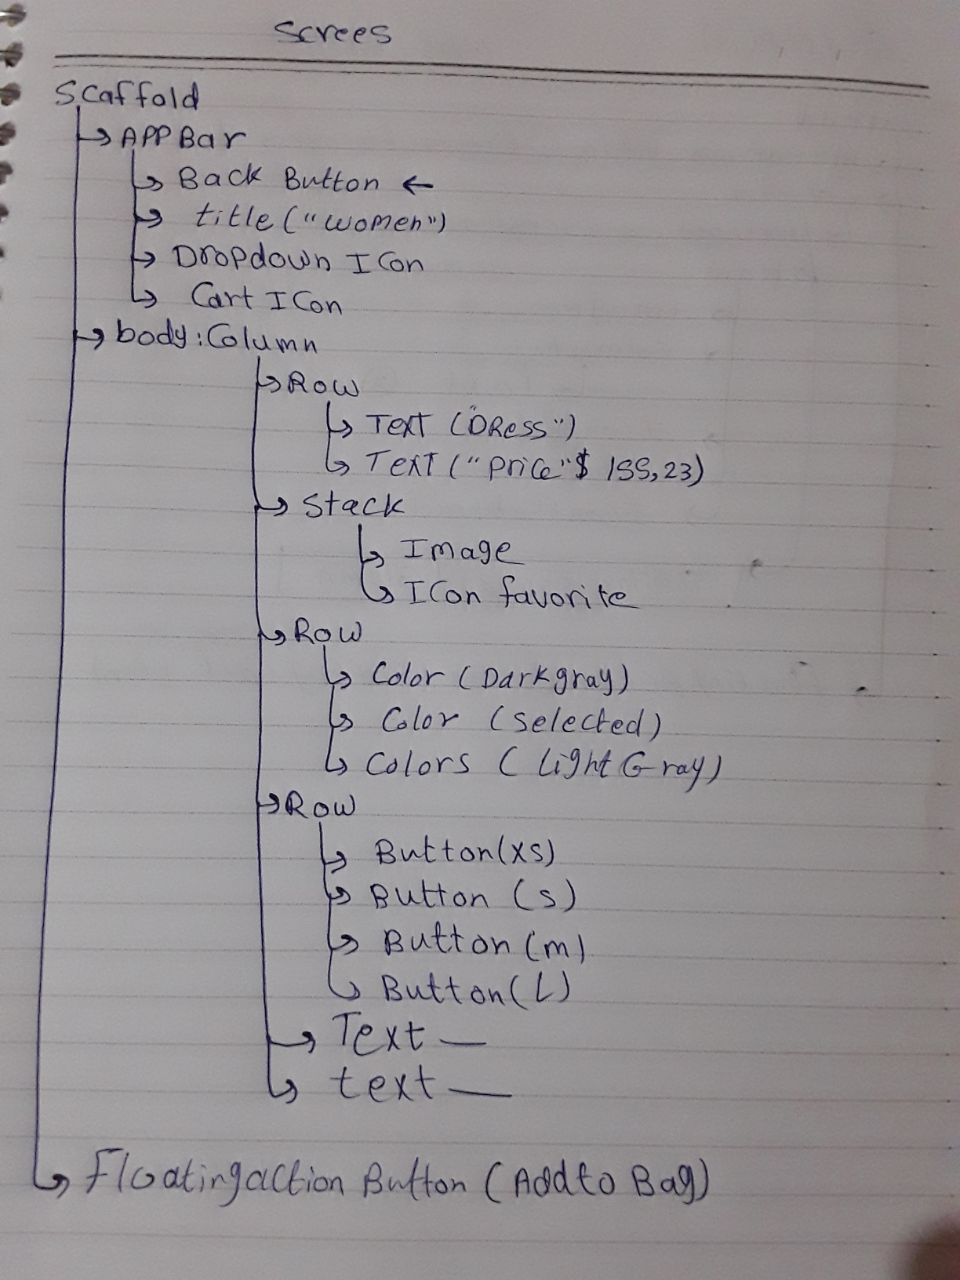 Screes
Scaffold
APP Bar
Back Button ←
title ("women")
Dropdown ICon
Cart ICon
body:Column
Row
Text ("DRess")
Text ("Price"$ 155,23)
Stack
Image
ICon favorite
Row
Color (Darkgray)
Color (Selected)
Colors (LightGray)
Row
Button(xs)
Button (s)
Button (m)
Button(L)
Text —
text —
Floatingaction Button (Add to Bag)